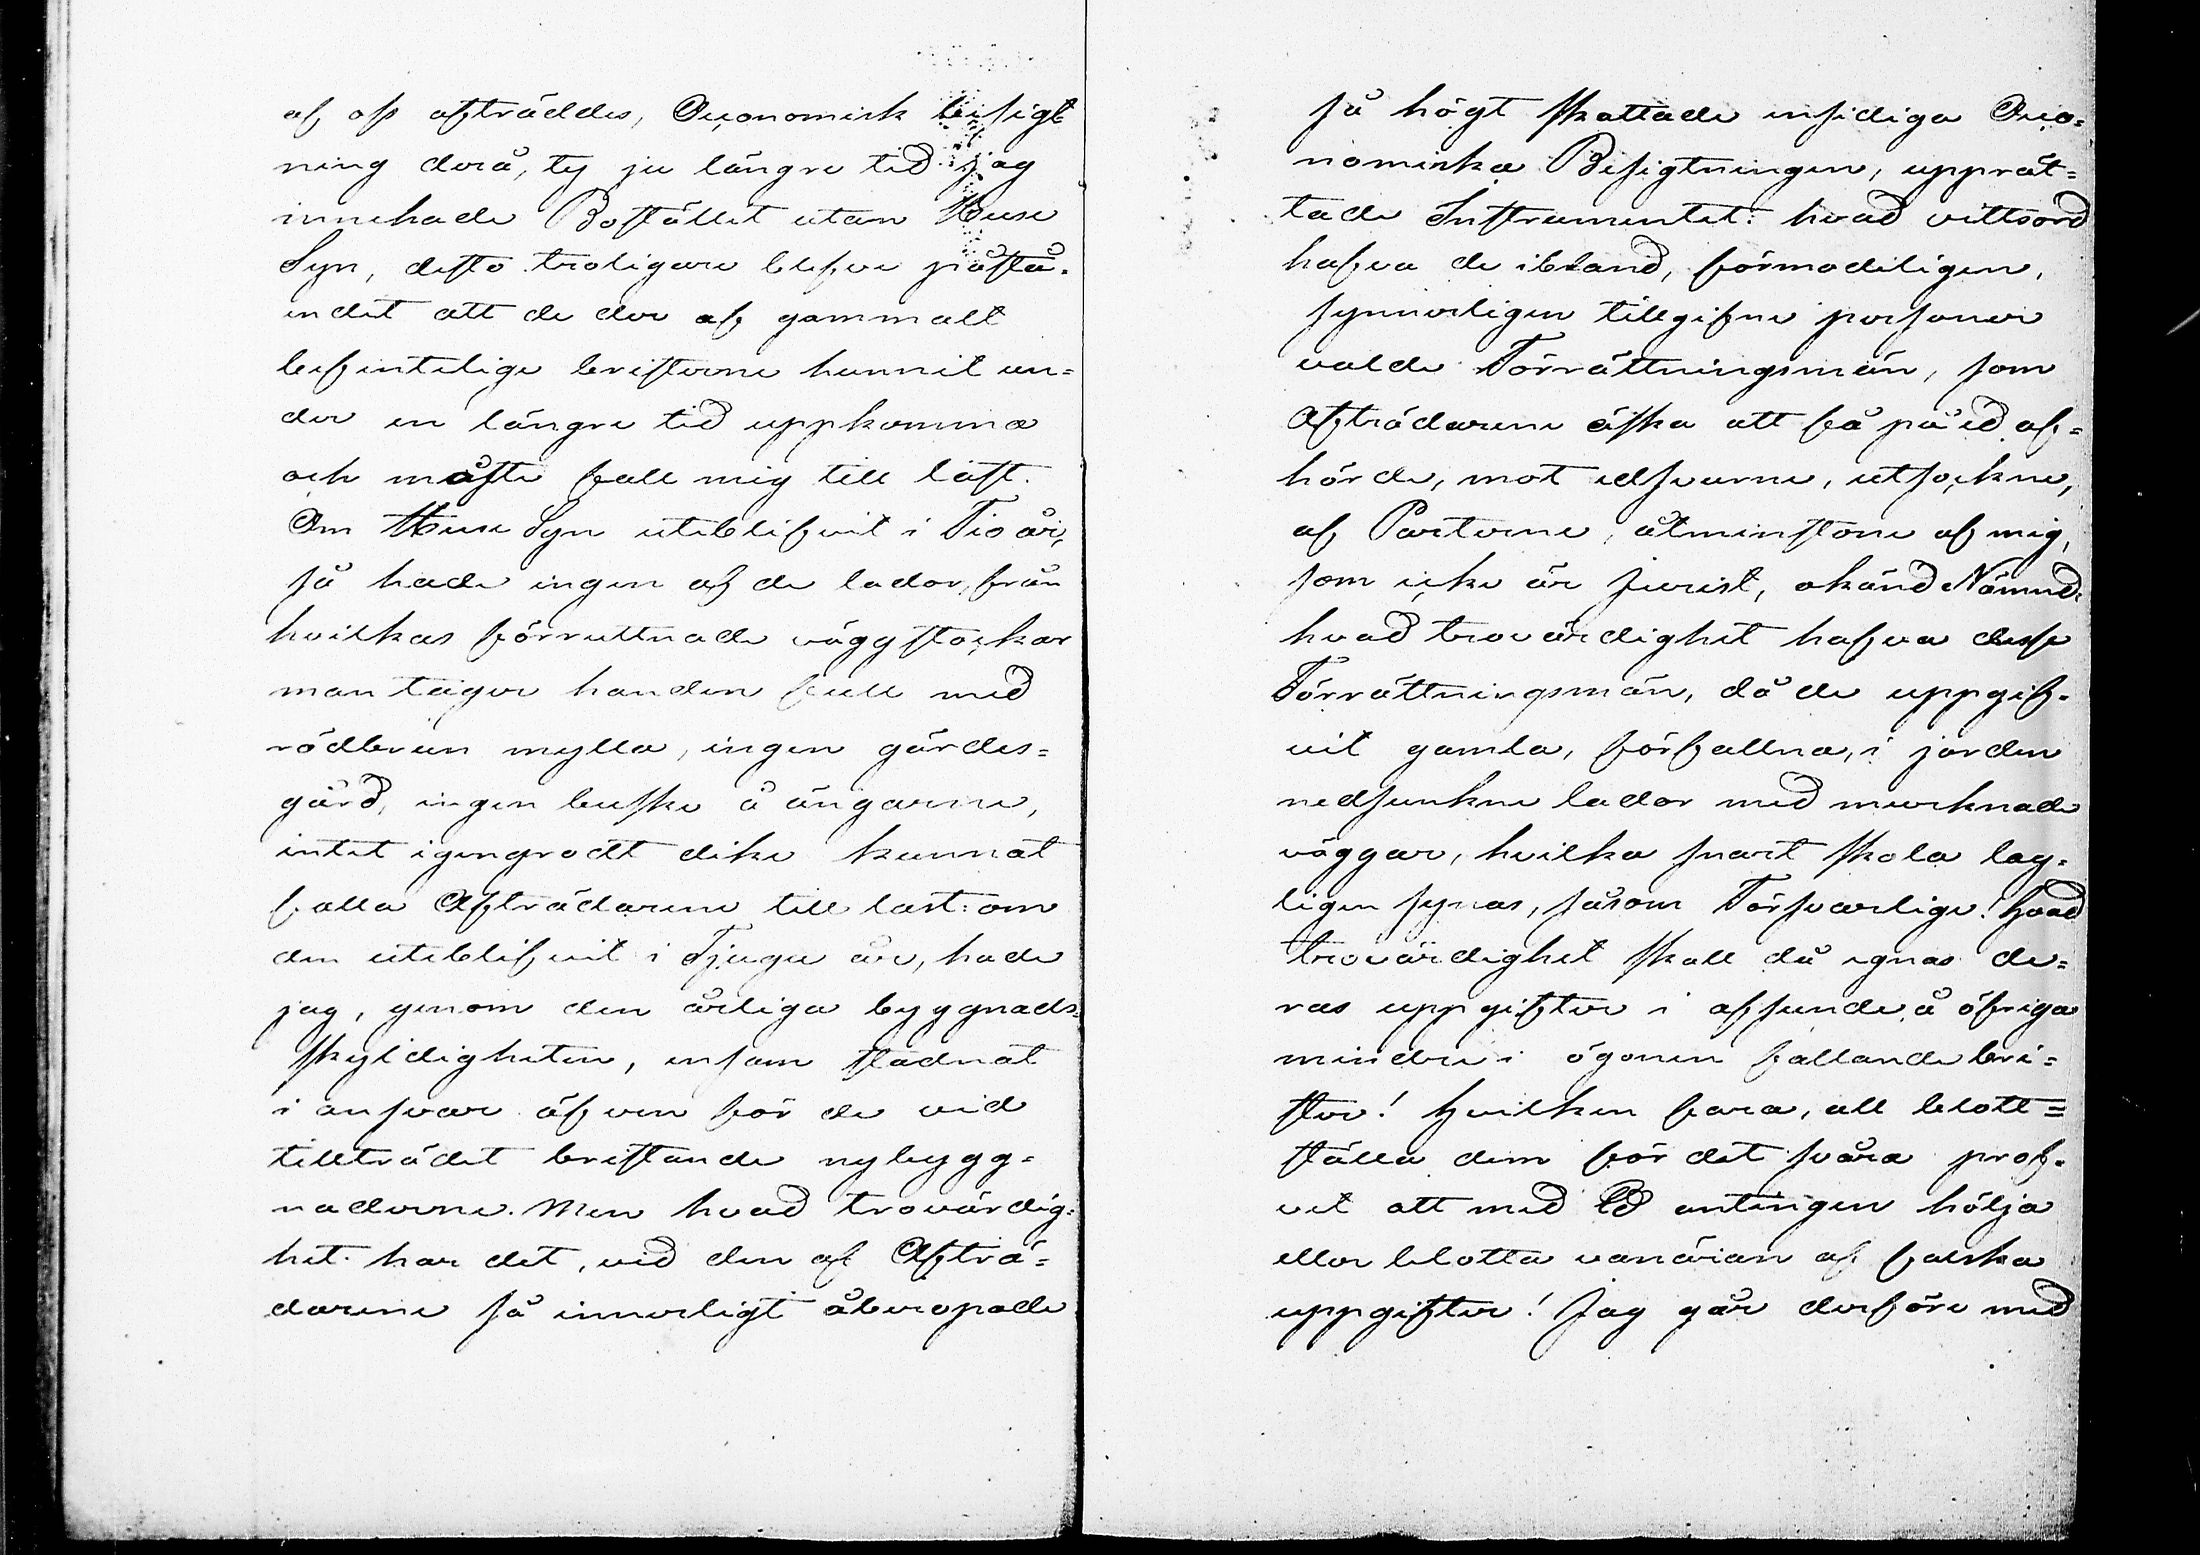 af oss afträddes, Oeconomisk besigt
ning derå, ty ju längre tid jag
innehade Bostället utan Huse
Syn, desto troligare blefve påstå-
endet att de der af gammalt
befintelige bristerne hunnit un=
der en längre tid uppkomma
och måste fall mig till last.
Om Huse Syn uteblifvit i Tio år,
så hade ingen af de lador, från
hvilkas förruttnade väggstockar
man tager handen full med
rödbrun mylla, ingen gärdes=
gård, ingen buske å ängarne,
intet igengrodt dike kunnat
falla Afträdarene till last: om
den uteblifvit i Tjugu år, hade
jag, genom den årliga byggnads-
skyldigheten, ensam stadnat
i ansvar äfven för de vid
tillträdet bristande nybygg=
naderne. Men hvad trovärdig=
het har det, vid den af Afträ=
darene så innerligt åberopade
så högt skattade ensidiga Oeco=
nomiska Besigtningen, upprät=
tade Instrumentet: hvad vittsord
hafva de ibland, förmodeligen,
synnerligen tillgifne personer
valde Förrättningsmän, som
Afträdarene äska att få på ed af=
hörde, mot edsvurne, utsockne,
af Parterne, åtminstone af mig,
som icke är Jurist, okänd Nämnd:
hvad trovärdighet hafva desse
Förrättningsmän, då de uppgif-
vit gamla, förfallna, i jorden
nedsunkne lador med murknade
väggar, hvilka snart skola lag=
ligen synas, såsom Försvarlige! Hvad
trovärdighet skall då egnas de=
ras uppgifter i afseende å öfriga
mindre i ögonen fallande bri=
ster! Hvilken fara, att blott=
ställa dem för det svåra prof-
vet att med Ed antingen hölja
eller blotta vanäran af falska
uppgifter! Jag går derföre med